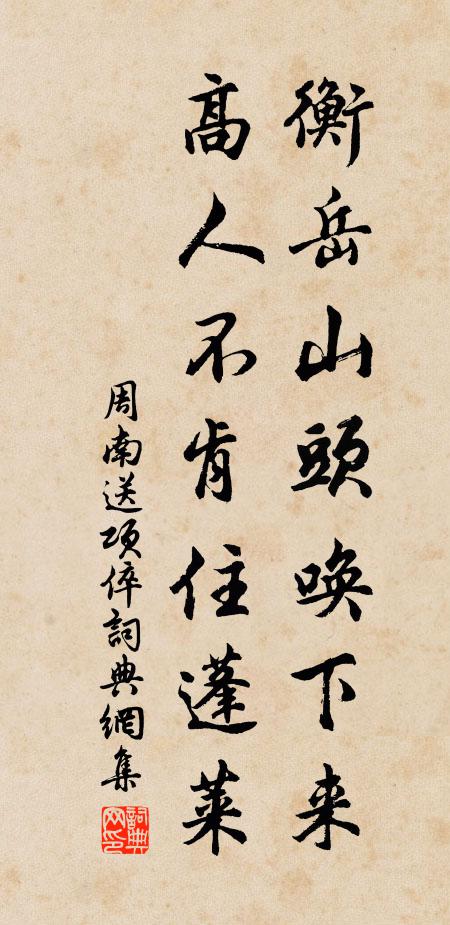 衡岳山頭唤下来
高人不肯住蓬萊
周南送项倅詞典網集
詞典网印